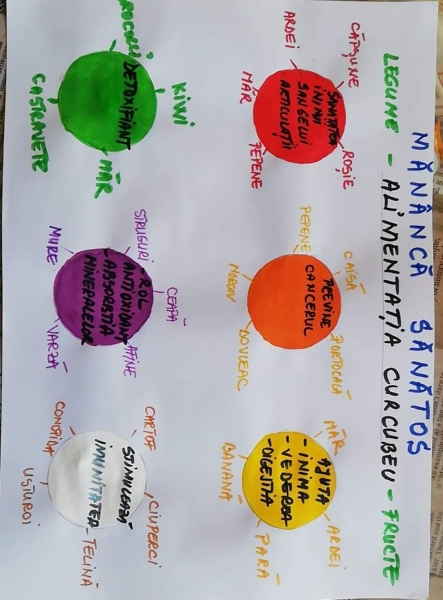 MĂNÂNCĂ SĂNĂTOS
LEGUME - ALIMENTAȚIA CURCUBEU - FRUCTE
CĂPȘUNE
ARDEI
ROȘIE
MĂR
PEPENE
SĂNĂTATEA
INIMII
SÂNGELUI
ARTICULAȚII
PEPENE
CAISĂ
MORCOV
PORTOCALĂ
DOVLEAC
PREVINE
CANCERUL
MĂR
ARDEI
BANANĂ
PARĂ
AJUTĂ
- INIMA
- VEDEREA
- DIGESTIA
BROCCOLI
KIWI
CASTRAVETE
MĂR
DETOXIFIANT
STRUGURI
CEAPĂ
MURE
AFINE
VARZĂ
- ROL
ANTIOXIDANT
- ABSORBȚIA
MINERALELOR
CARTOF
CIUPERCI
CONOPIDĂ
USTUROI
ȚELINĂ
STIMULEAZĂ
IMUNITATEA